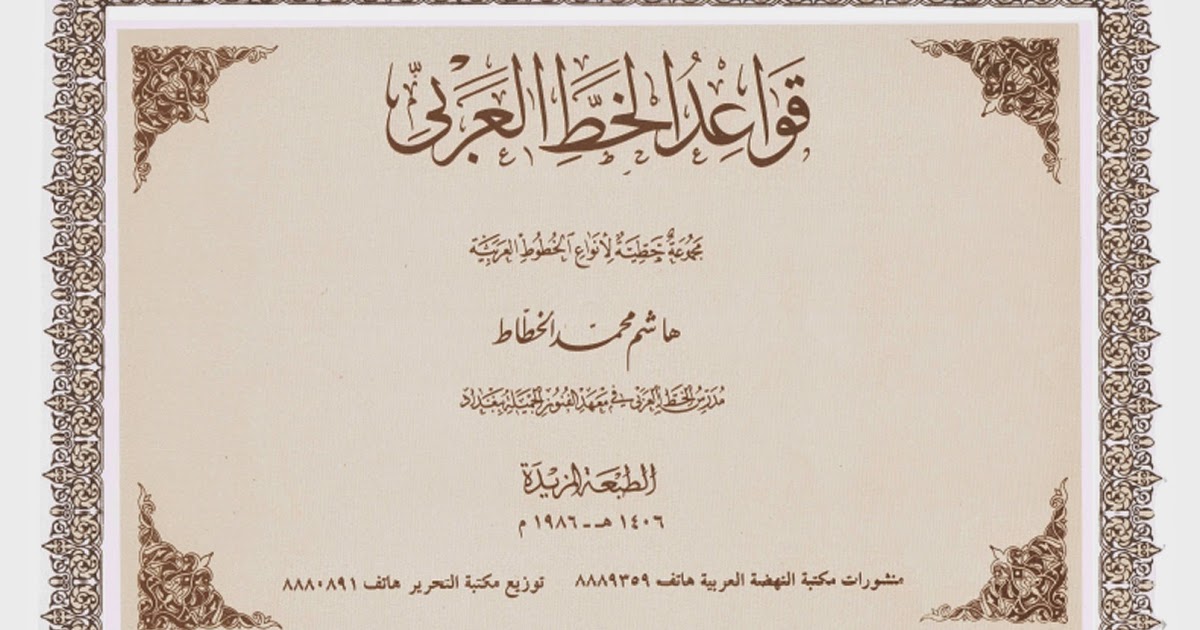 قَوَاعِدُ الخَطِّ العَرَبيّ
مَجمُوعَةٌ خَطِّيَّةٌ لِأَنوَاعِ الخُطُوطِ العَرَبيَّة
هاشم محمّد الخطّاط
مُدَرِّسُ الخَطِّ العَرَبي في مَعهَدِ الفُنُونِ الجَمِيلَةِ بِبَغدَاد
الطبعَة المزيدَة
١٤٠٦ هـ - ١٩٨٦ م
منشورات مكتبة النهضة العربية هاتف ٨٨٨٩٣٥٩ توزيع مكتبة التحرير هاتف ٨٨٨٠٨٩١